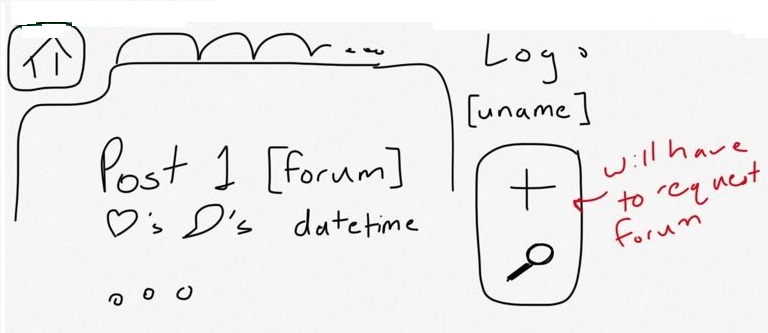 Logo
[uname]
Post 1 [forum]
♡'s 's datetime
+
will have
to request
forum